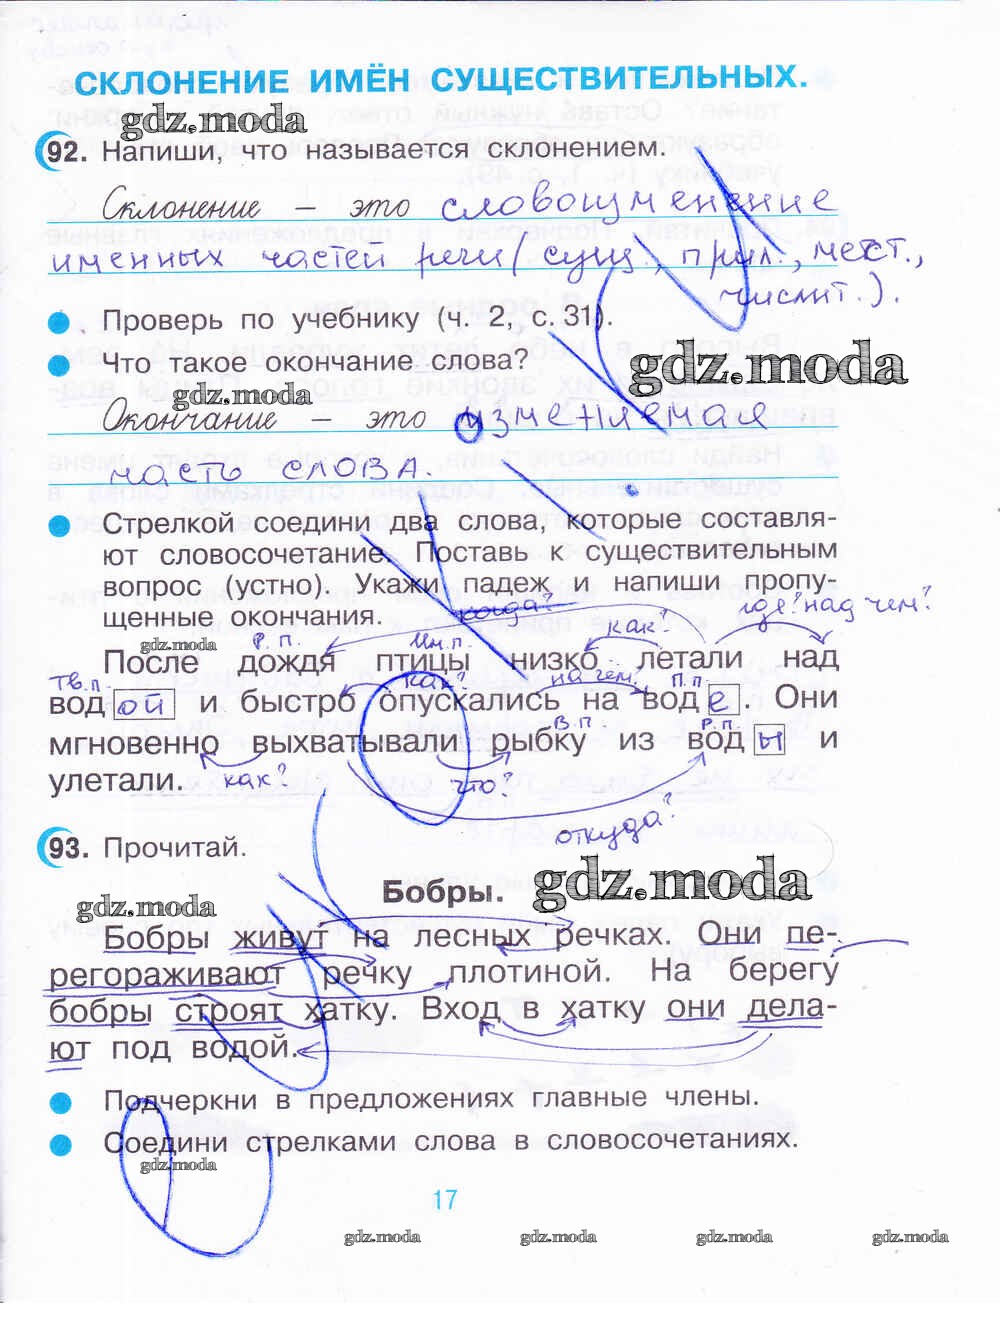 СКЛОНЕНИЕ ИМЁН СУЩЕСТВИТЕЛЬНЫХ.
gdz.moda
92. Напиши, что называется склонением.
Склонение – это словоизменение
именных частей речи (сущ., прил., мест.,
числит.).
Проверь по учебнику (ч. 2, с. 31).
Что такое окончание слова?
gdz.moda
gdz.moda
Окончание – это изменяемая
часть слова.
Стрелкой соедини два слова, которые составля-
ют словосочетание. Поставь к существительным
вопрос (устно). Укажи падеж и напиши пропу-
щенные окончания. когда? где? над чем?
gdz.moda Р.п. Им.п. как?
После дождя птицы низко летали над
тв.п. как? на чём? П.п.
вод ой и быстро опускались на вод е . Они
В.п Р.п.
мгновенно выхватывали рыбку из вод ы и
улетали. как? что?
откуда?
93. Прочитай.
Бобры. gdz.moda
gdz.moda
Бобры живут на лесных речках. Они пе-
регораживают речку плотиной. На берегу
бобры строят хатку. Вход в хатку они дела-
ют под водой.
Подчеркни в предложениях главные члены.
Соедини стрелками слова в словосочетаниях.
gdz.moda
17
gdz.moda gdz.moda gdz.moda gdz.moda